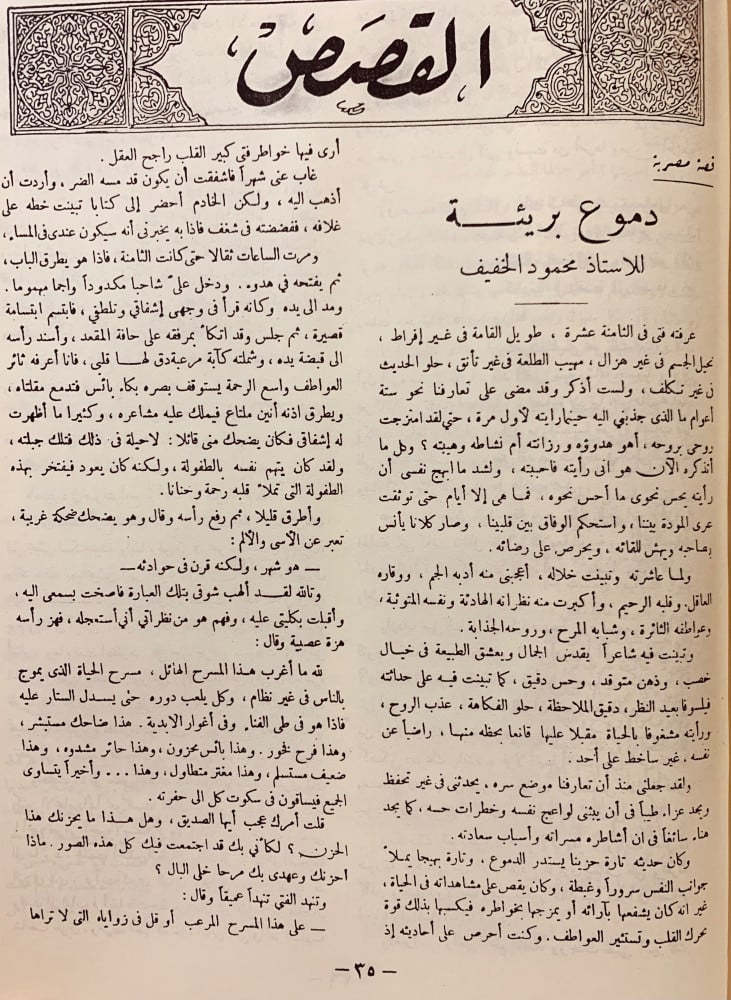 القصص
قصة مصرية
دموع بريئة
للاستاذ محمود الخفيف
عرفته فتى فى الثامنة عشرة ، طويل القامة فى غير إفراط ،
نحيل الجسم فى غير هزال ، مهيب الطلعة فى غير تأنق ، حلو الحديث
فى غير تكلف ، ولست أذكر وقد مضى على تعارفنا نحو ستة
أعوام ما الذى جذبنى اليه حينما رايته لأول مرة ، حتى لقد امتزجت
روحى بروحه ، أهو هدوؤه ورزانته أم نشاطه وهيبته ؟ وكل ما
أتذكره الآن هو انى رأيته فاحببته ، ولشد ما ابهج نفسى أن
رأيته يحس نحوى ما أحس نحوه ، فما هى إلا أيام حتى توثقت
عرى المودة بيننا ، واستحكم الوفاق بين قلبينا ، وصار كلانا يأنس
بصاحبه ويهش للقائه ، ويحرص على رضائه .
ولما عاشرته وتبينت خلاله ، أعجبنى منه أدبه الجم ، ووقاره
العاقل وقلبه الرحيم ، وأكبرت منه نظراته الهادئة ونفسه المتوثبة ،
وعواطفه الثائرة ، وشبابه المرح ، وروحه الجذابة .
وتبينت فيه شاعراً يقدس الجمال ويعشق الطبيعة فى خيال
خصب ، وذهن متوقد ، وحس دقيق ، كما تبينت فيه على حداثته
فيلسوفا بعيد النظر ، دقيق الملاحظة ، حلو الفكاهة ، عذب الروح ،
ورأيته مشغوفا بالحياة مقبلا عليها قانعا بحظه منها ، راضياً عن
نفسه ، غير ساخط على أحد .
ولقد جعلنى منذ أن تعارفنا موضع سره ، يحدثنى فى غير تحفظ
ويجد عزاء طيباً فى أن يبثنى لواعج نفسه وخطرات حسه ، كما يجد
هناء سائغا فى ان أشاطره مسراته وأسباب سعادته .
وكان حديثه تارة حزينا يستدر الدموع ، وتارة بهيجا يملأ
جوانب النفس سروراً وغبطة ، وكان يقص على مشاهداته فى الحياة ،
غير انه كان يشفعها بآرائه أو يمزجها بخواطره فيكسبها بذلك قوة
تحرك القلب وتستثير العواطف . وكنت أحرص على أحاديثه إذ
أرى فيها خواطر فتى كبير القلب راجح العقل .
غاب عنى شهراً فاشفقت أن يكون قد مسه الضر ، وأردت أن
أذهب اليه ، ولكن الخادم أحضر إلى كتابا تبينت خطه على
غلافه ، ففضضته فى شغف فاذا به يخبرنى أنه سيكون عندى فى المساء ،
ومرت الساعات ثقالا حتى كانت الثامنة ، فاذا هو يطرق الباب ،
ثم يفتحه فى هدوء . ودخل علىّ شاحبا مكدوداً واجما مهموما .
ومد الى يده وكانه قرأ فى وجهى إشفاقى وتلطفى ، فابتسم ابتسامة
قصيرة ، ثم جلس وقد اتكأ بمرفقه على حافة المقعد ، وأسند رأسه
الى قبضة يده ، وشملته كآبة مرعبة دق لها قلبى ، فانا أعرفه ثائر
العواطف واسع الرحمة يستوقف بصره بكاء بائس فتدمع مقلتاه ،
ويطرق اذنه أنين ملتاع فيملك عليه مشاعره ، وكثيرا ما أظهرت
له إشفاقى فكان يضحك منى قائلا : لاحيلة فى ذلك فتلك جبلته ،
ولقد كان يتهم نفسه بالطفولة ، ولكنه كان يعود فيفتخر بهذه
الطفولة التى تملأ قلبه رحمة وحنانا .
وأطرق قليلا ، ثم رفع رأسه وقال وهو يضحك ضحكة غريبة ،
تعبر عن الأسى والألم :
— هو شهر ، ولكنه قرن فى حوادثه —
وتالله لقد ألهب شوقى بتلك العبارة فاصخت بسمعى اليه ،
وأقبلت بكليتى عليه ، وفهم هو من نظراتى أنى أستعجله ، فهز رأسه
هزة عصبية وقال :
لله ما أغرب هذا المسرح الهائل ، مسرح الحياة الذى يموج
بالناس فى غير نظام ، وكل يلعب دوره حتى يسدل الستار عليه
فاذا هو فى طى الفناء وفى أغوار الابدية . هذا ضاحك مستبشر ،
وهذا فرح نخور . وهذا بائس محزون ، وهذا حائر مشدوه ، وهذا
ضعيف مستسلم ، وهذا مغتر متطاول ، وهذا ... وأخيراً يتساوى
الجمع فيساقون فى سكوت كل الى حفرته .
قلت أمرك عجب أيها الصديق ، وهل هذا ما يحزنك هذا
الحزن ؟ لكأنى بك قد اجتمعت فيك كل هذه الصور . ماذا
أحزنك وعهدى بك مرحا خلى البال ؟
وتنهد الفتى تنهداً عميقاً وقال :
— على هذا المسرح المرعب أو قل فى زواياه التى لا تراها
— ٣٥ —